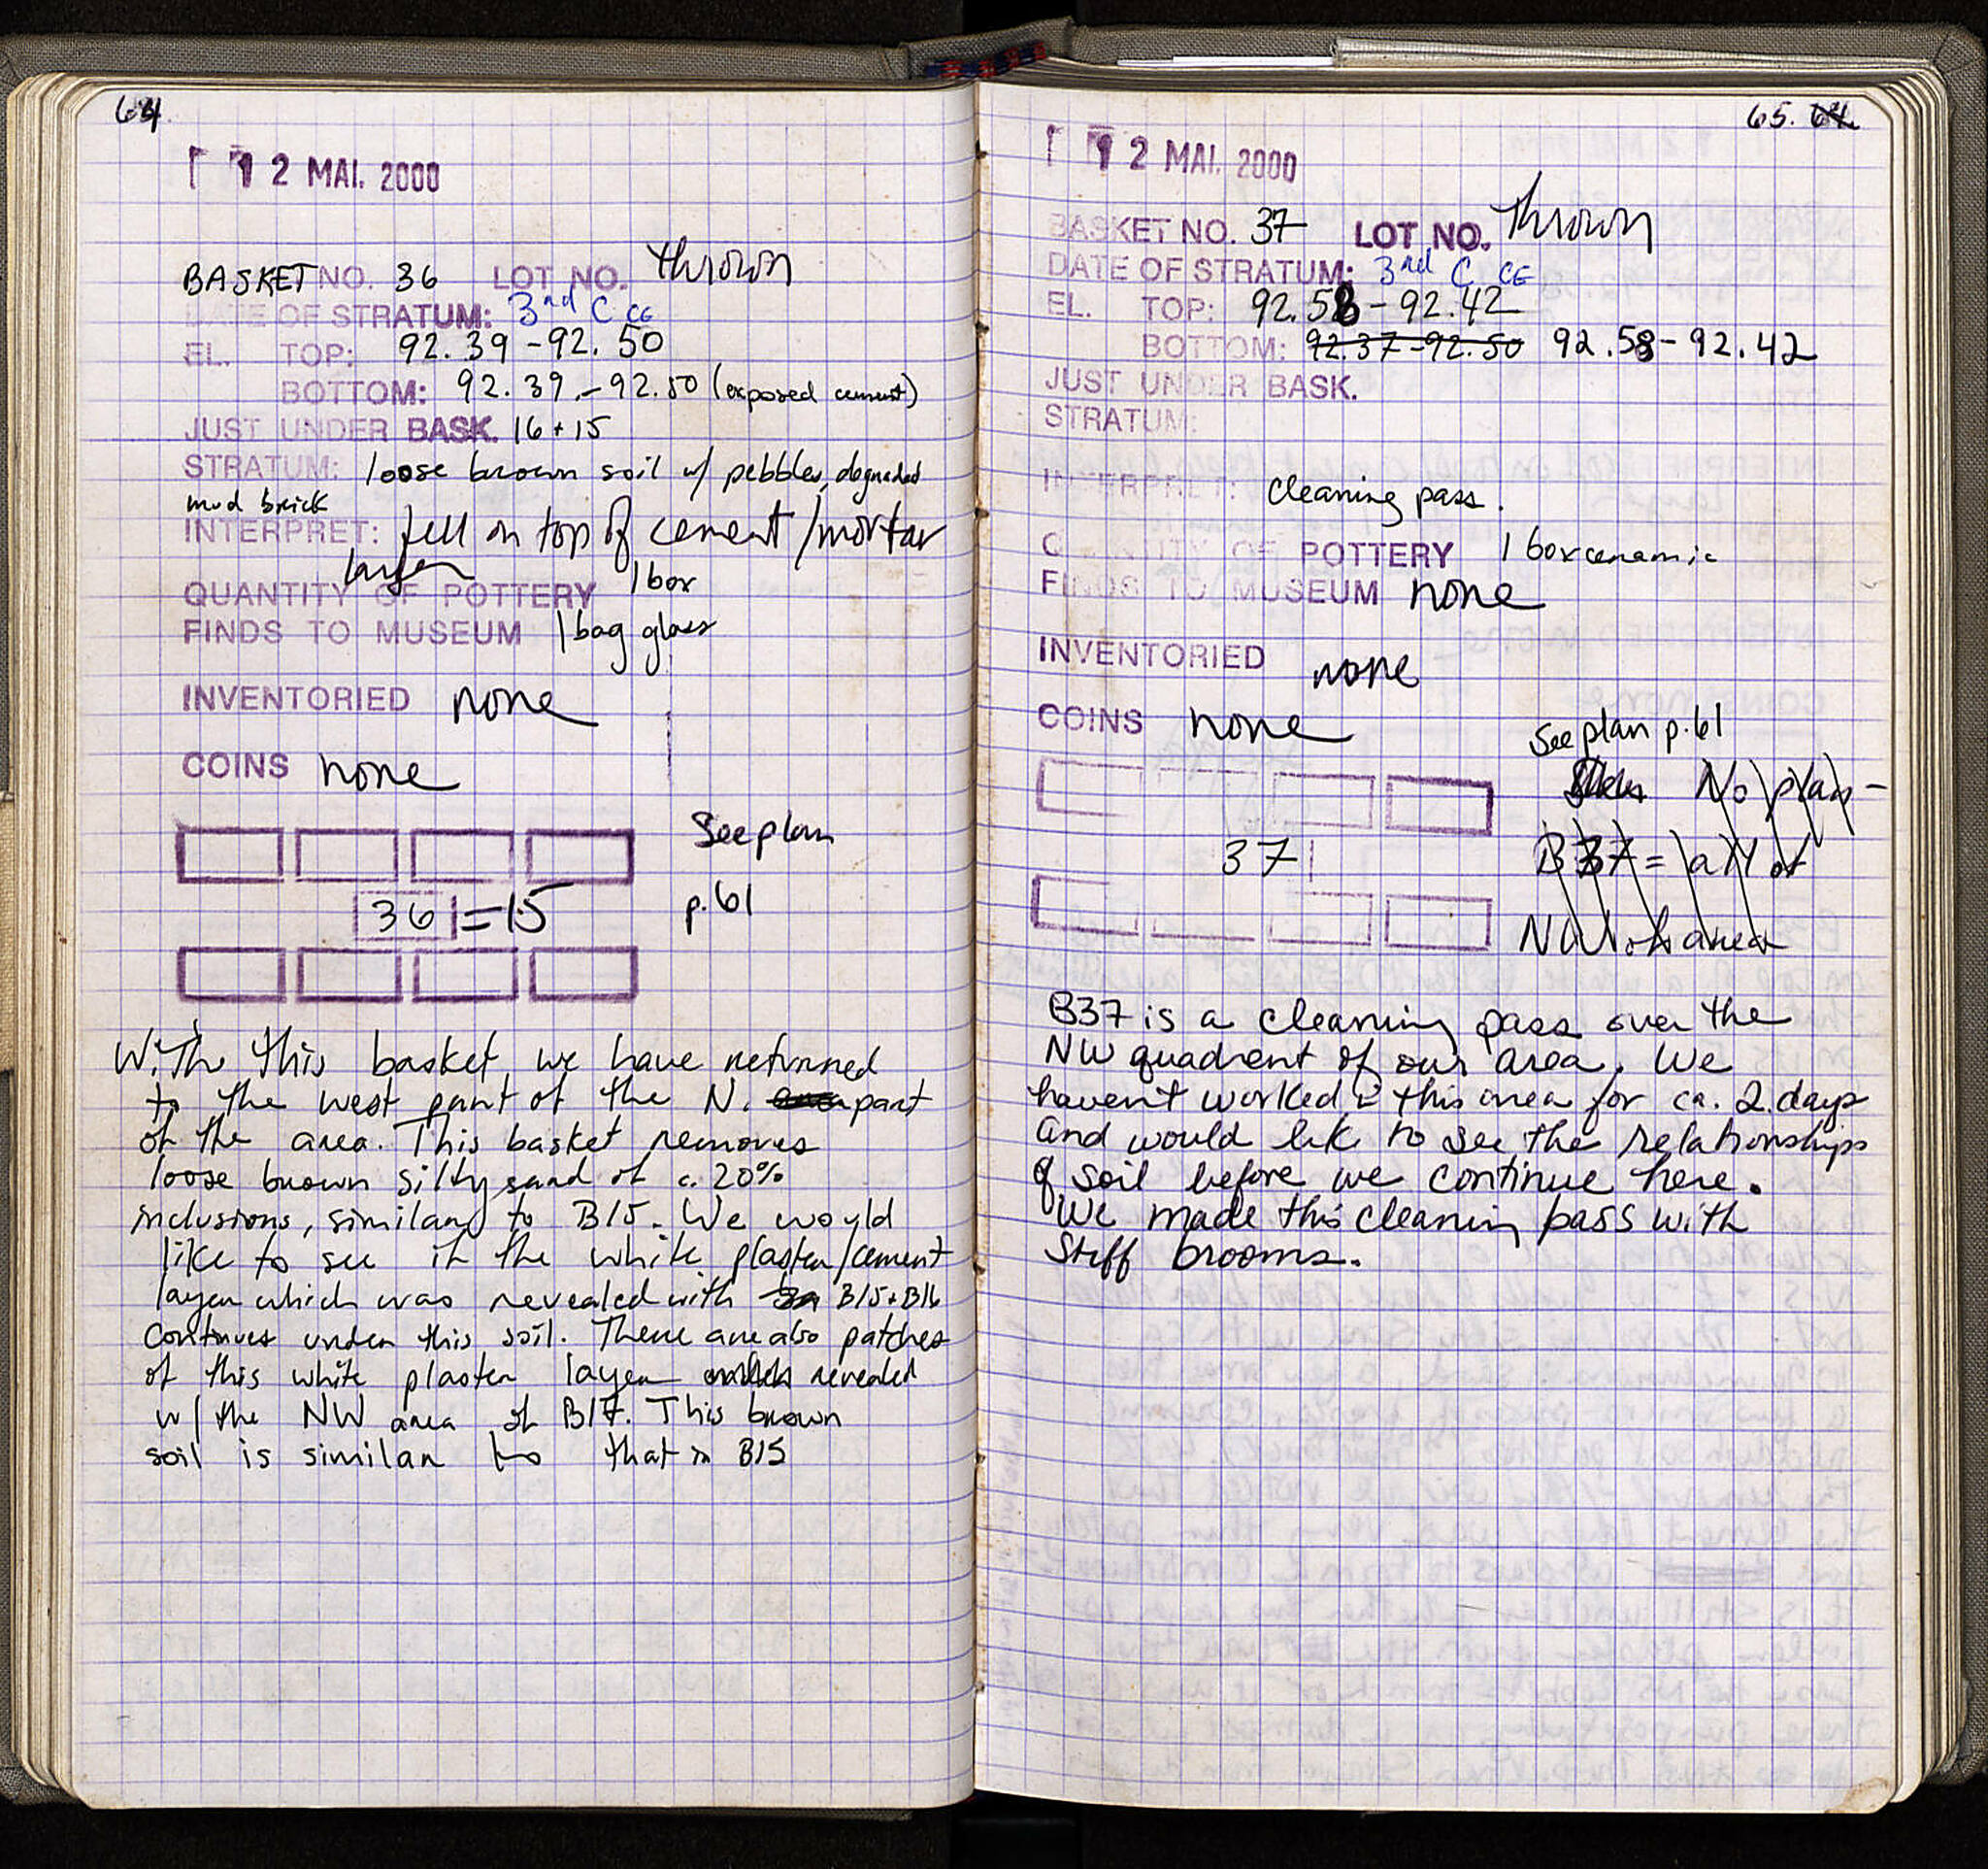 64
12 MAI. 2000
BASKET NO. 36 LOT NO. thrown
DATE OF STRATUM: 3rd C CE
EL. TOP: 92.39 - 92.50
BOTTOM: 92.39 - 92.50 (exposed cement)
JUST UNDER BASK. 16 + 15
STRATUM: loose brown soil w/ pebbles, degraded
mud brick
INTERPRET: fill on top of cement/mortar
layer
QUANTITY OF POTTERY 1 box
FINDS TO MUSEUM 1 bag glass
INVENTORIED none
COINS none
See plan
36 = 15 p. 61
With this basket, we have returned
to the west part of the N. part
of the area. This basket removes
loose brown silty sand of c. 20%
inclusions, similar to B15. We would
like to see if the white plaster/cement
layer which was revealed with B15 + B16
continues under this soil. There are also patches
of this white plaster layer revealed
w/ the NW area of B17. This brown
soil is similar to that in B15
65. 64.
12 MAI. 2000
BASKET NO. 37 LOT NO. thrown
DATE OF STRATUM: 3rd C CE
EL. TOP: 92.58 - 92.42
BOTTOM: 92.37 - 92.50 92.58 - 92.42
JUST UNDER BASK.
STRATUM:
INTERPRET: cleaning pass.
QUANTITY OF POTTERY 1 box ceramic
FINDS TO MUSEUM none
INVENTORIED none
COINS none
See plan p. 61
No plan -
37 B37 = all of
NW of area
B37 is a cleaning pass over the
NW quadrent of our area. We
haven't worked in this area for ca. 2 days
and would like to see the relationships
of soil before we continue here.
We made this cleaning pass with
stiff brooms.